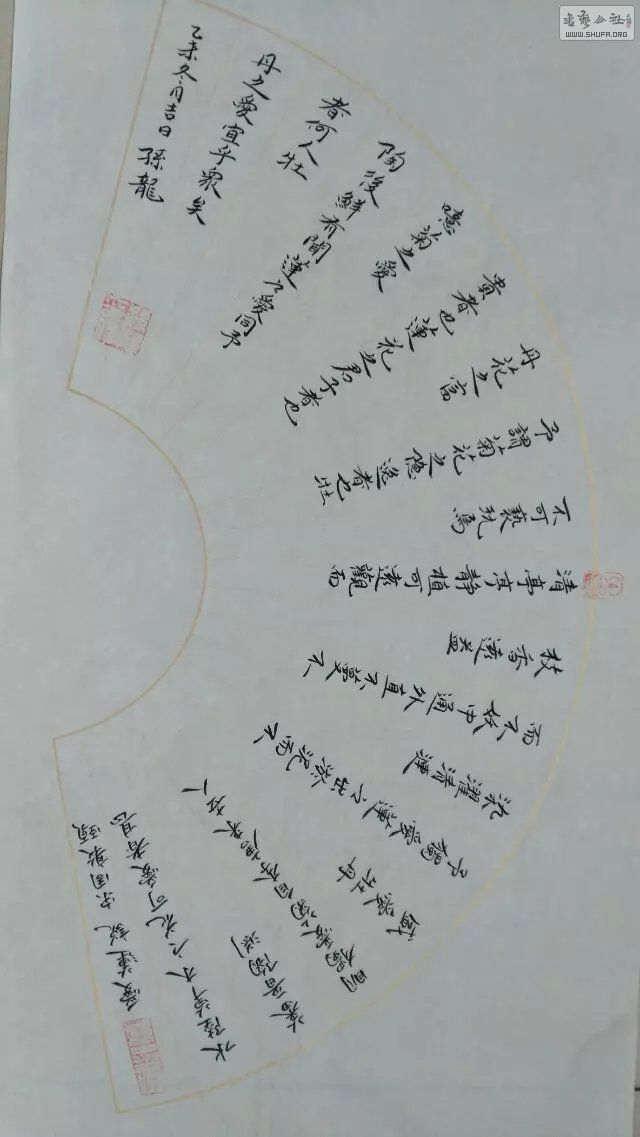 愛蓮說 宋周敦頤
水陸草木之花可愛者甚
蕃晉陶淵
明獨愛菊自李唐來世人
盛愛牡丹
予獨愛蓮之出淤泥而不
染濯清漣
而不妖中通外直不蔓不
枝香遠益
清亭亭静植可遠觀而
不可褻玩焉
予謂菊花之隐逸者也牡
丹花之富
貴者也蓮花之君子者也
噫菊之愛
陶後鮮有聞蓮之愛同予
者何人牡
丹之愛宜乎衆矣
乙未冬月吉日孫龍
书艺公社
WWW.SHUFA.ORG